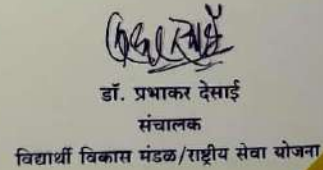 डॉ. प्रभाकर देसाई
संचालक
विद्यार्थी विकास मंडळ/राष्ट्रीय सेवा योजना